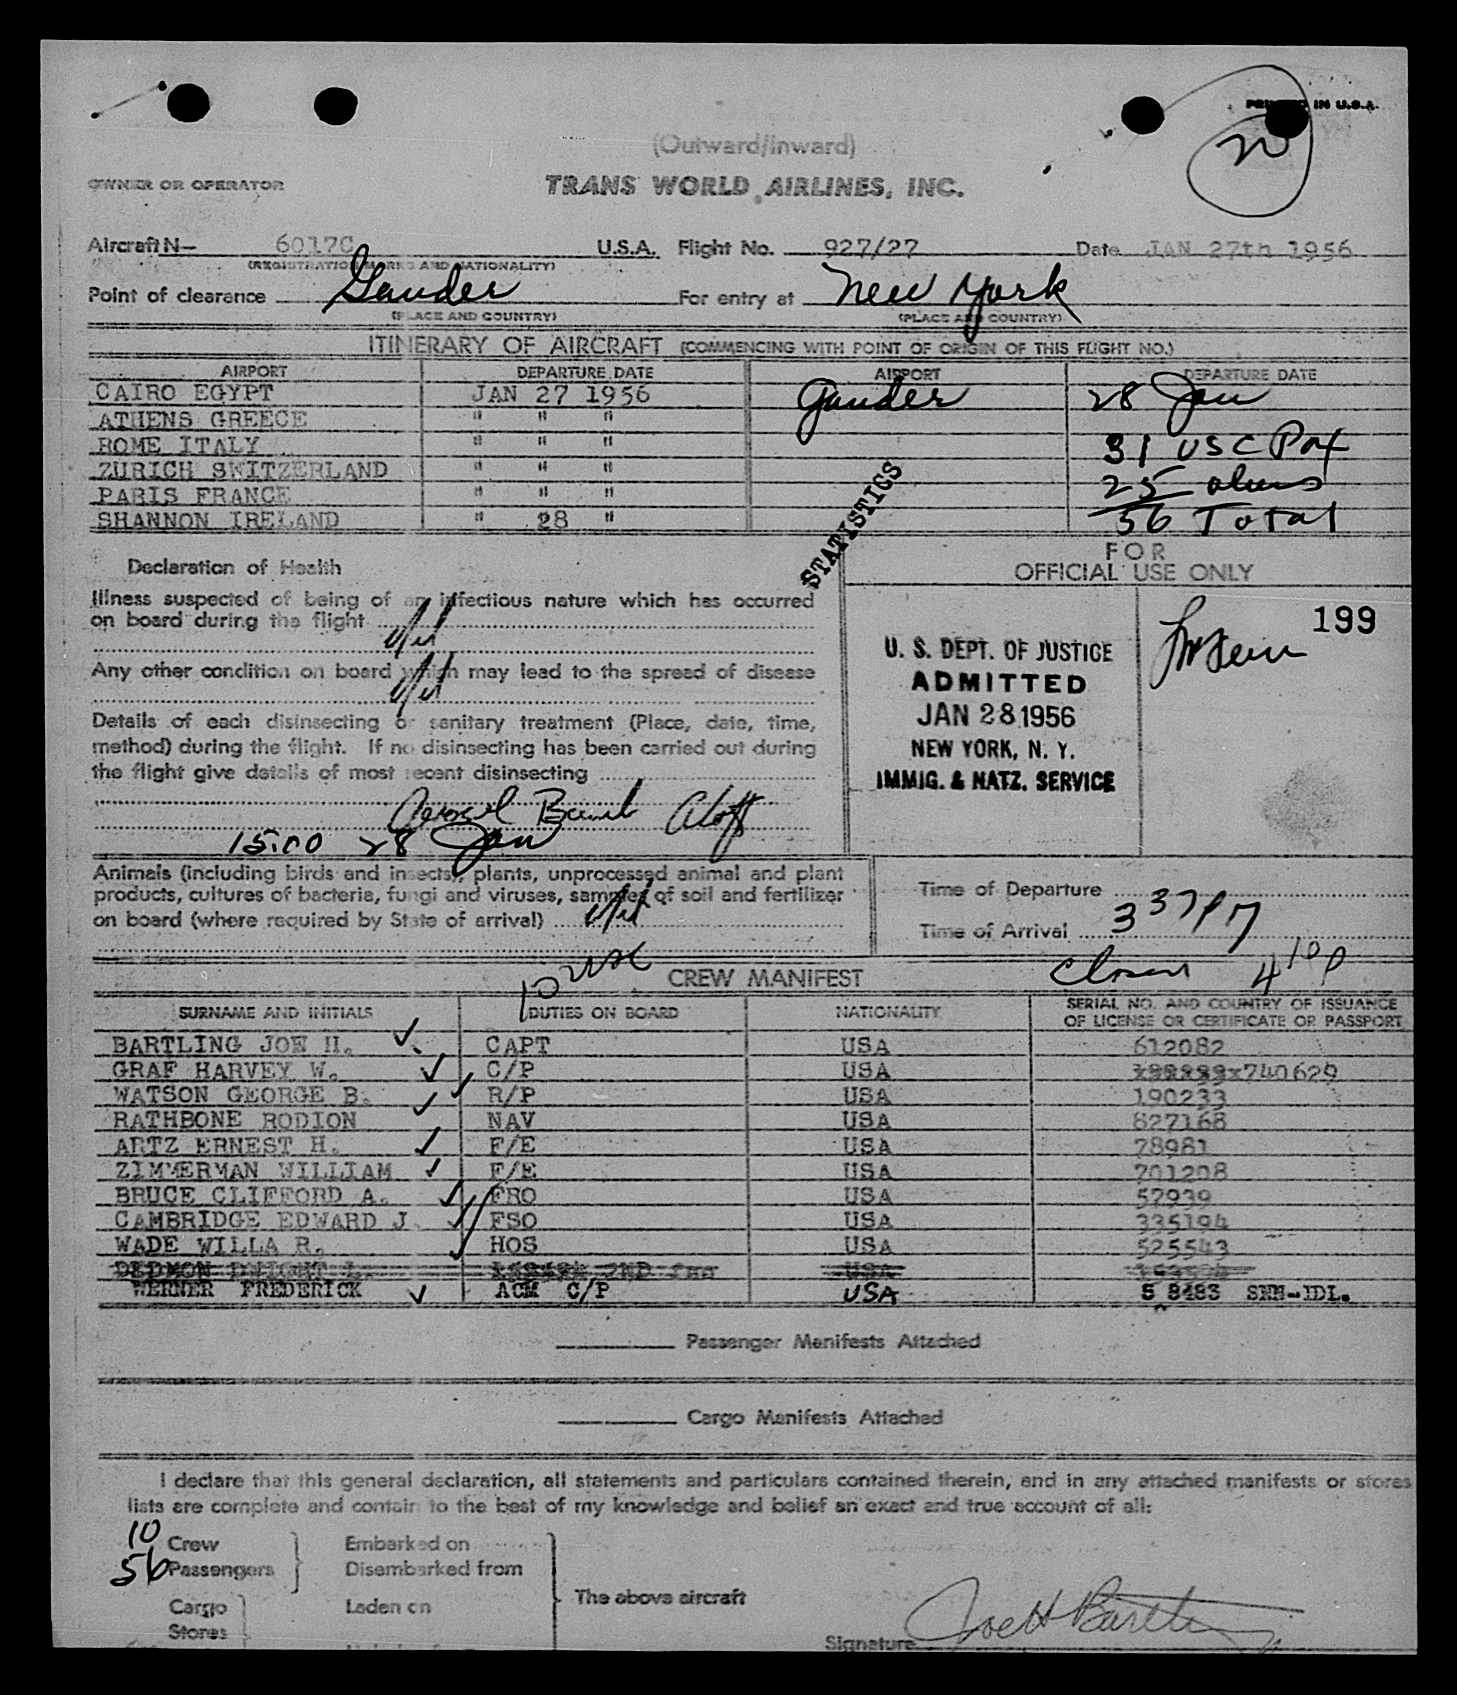 PRINTED IN U.S.A.
(Outward/Inward)
OWNER OR OPERATOR TRANS WORLD AIRLINES, INC.
Aircraft N- 6017C U.S.A. Flight No. 927/27 Date JAN 27th 1956
(REGISTRATION MARKS AND NATIONALITY)
Point of clearance Gander For entry at New York
(PLACE AND COUNTRY) (PLACE AND COUNTRY)
ITINERARY OF AIRCRAFT (COMMENCING WITH POINT OF ORIGIN OF THIS FLIGHT NO.)
AIRPORT DEPARTURE DATE AIRPORT DEPARTURE DATE
CAIRO EGYPT JAN 27 1956 Gander 28 Jan
ATHENS GREECE " " "
ROME ITALY " " " 31 USC Pax
ZURICH SWITZERLAND " " " 25 aliens
PARIS FRANCE " " "
SHANNON IRELAND " 28 " 56 Total
STATISTICS
FOR
OFFICIAL USE ONLY
Declaration of Health
Illness suspected of being of an infectious nature which has occurred
on board during the flight Nil
Any other condition on board which may lead to the spread of disease
Nil
Details of each disinsecting or sanitary treatment (Place, date, time,
method) during the flight. If no disinsecting has been carried out during
the flight give details of most recent disinsecting
Aerosol Bomb Aloft
15:00 28 Jan
199
U. S. DEPT. OF JUSTICE
ADMITTED
JAN 28 1956
NEW YORK, N. Y.
IMMIG. & NATZ. SERVICE
Animals (including birds and insects), plants, unprocessed animal and plant
products, cultures of bacteria, fungi and viruses, samples of soil and fertilizer
on board (where required by State of arrival) Nil
Time of Departure
Time of Arrival 3 37 PM
10 USC CREW MANIFEST 4 10 P
SURNAME AND INITIALS DUTIES ON BOARD NATIONALITY SERIAL NO. AND COUNTRY OF ISSUANCE
OF LICENSE OR CERTIFICATE OR PASSPORT
BARTLING JOE H. CAPT USA 612082
GRAF HARVEY W. C/P USA 740629
WATSON GEORGE B. R/P USA 190233
RATHBONE RODION NAV USA 827168
ARTZ ERNEST H. F/E USA 78981
ZIMMERMAN WILLIAM F/E USA 701208
BRUCE CLIFFORD A. FRO USA 57939
CAMBRIDGE EDWARD J. FSO USA 335194
WADE WILLA R. HOS USA 525543
DEDMON DWIGHT L. 2ND USA
WERNER FREDERICK ACM C/P USA 5 8483 SNN-IDL.
Passenger Manifests Attached
Cargo Manifests Attached
I declare that this general declaration, all statements and particulars contained therein, and in any attached manifests or stores
lists are complete and contain to the best of my knowledge and belief an exact and true account of all:
10 Crew Embarked on
56 Passengers Disembarked from
The above aircraft
Cargo Laden on
Stores
Signature Joe H Bartling